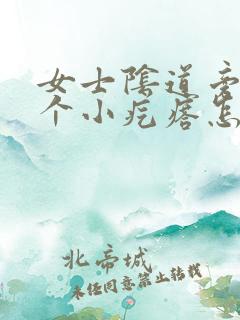 女士陰道旁
个小疙瘩怎
北帝城
未经同意禁止转载